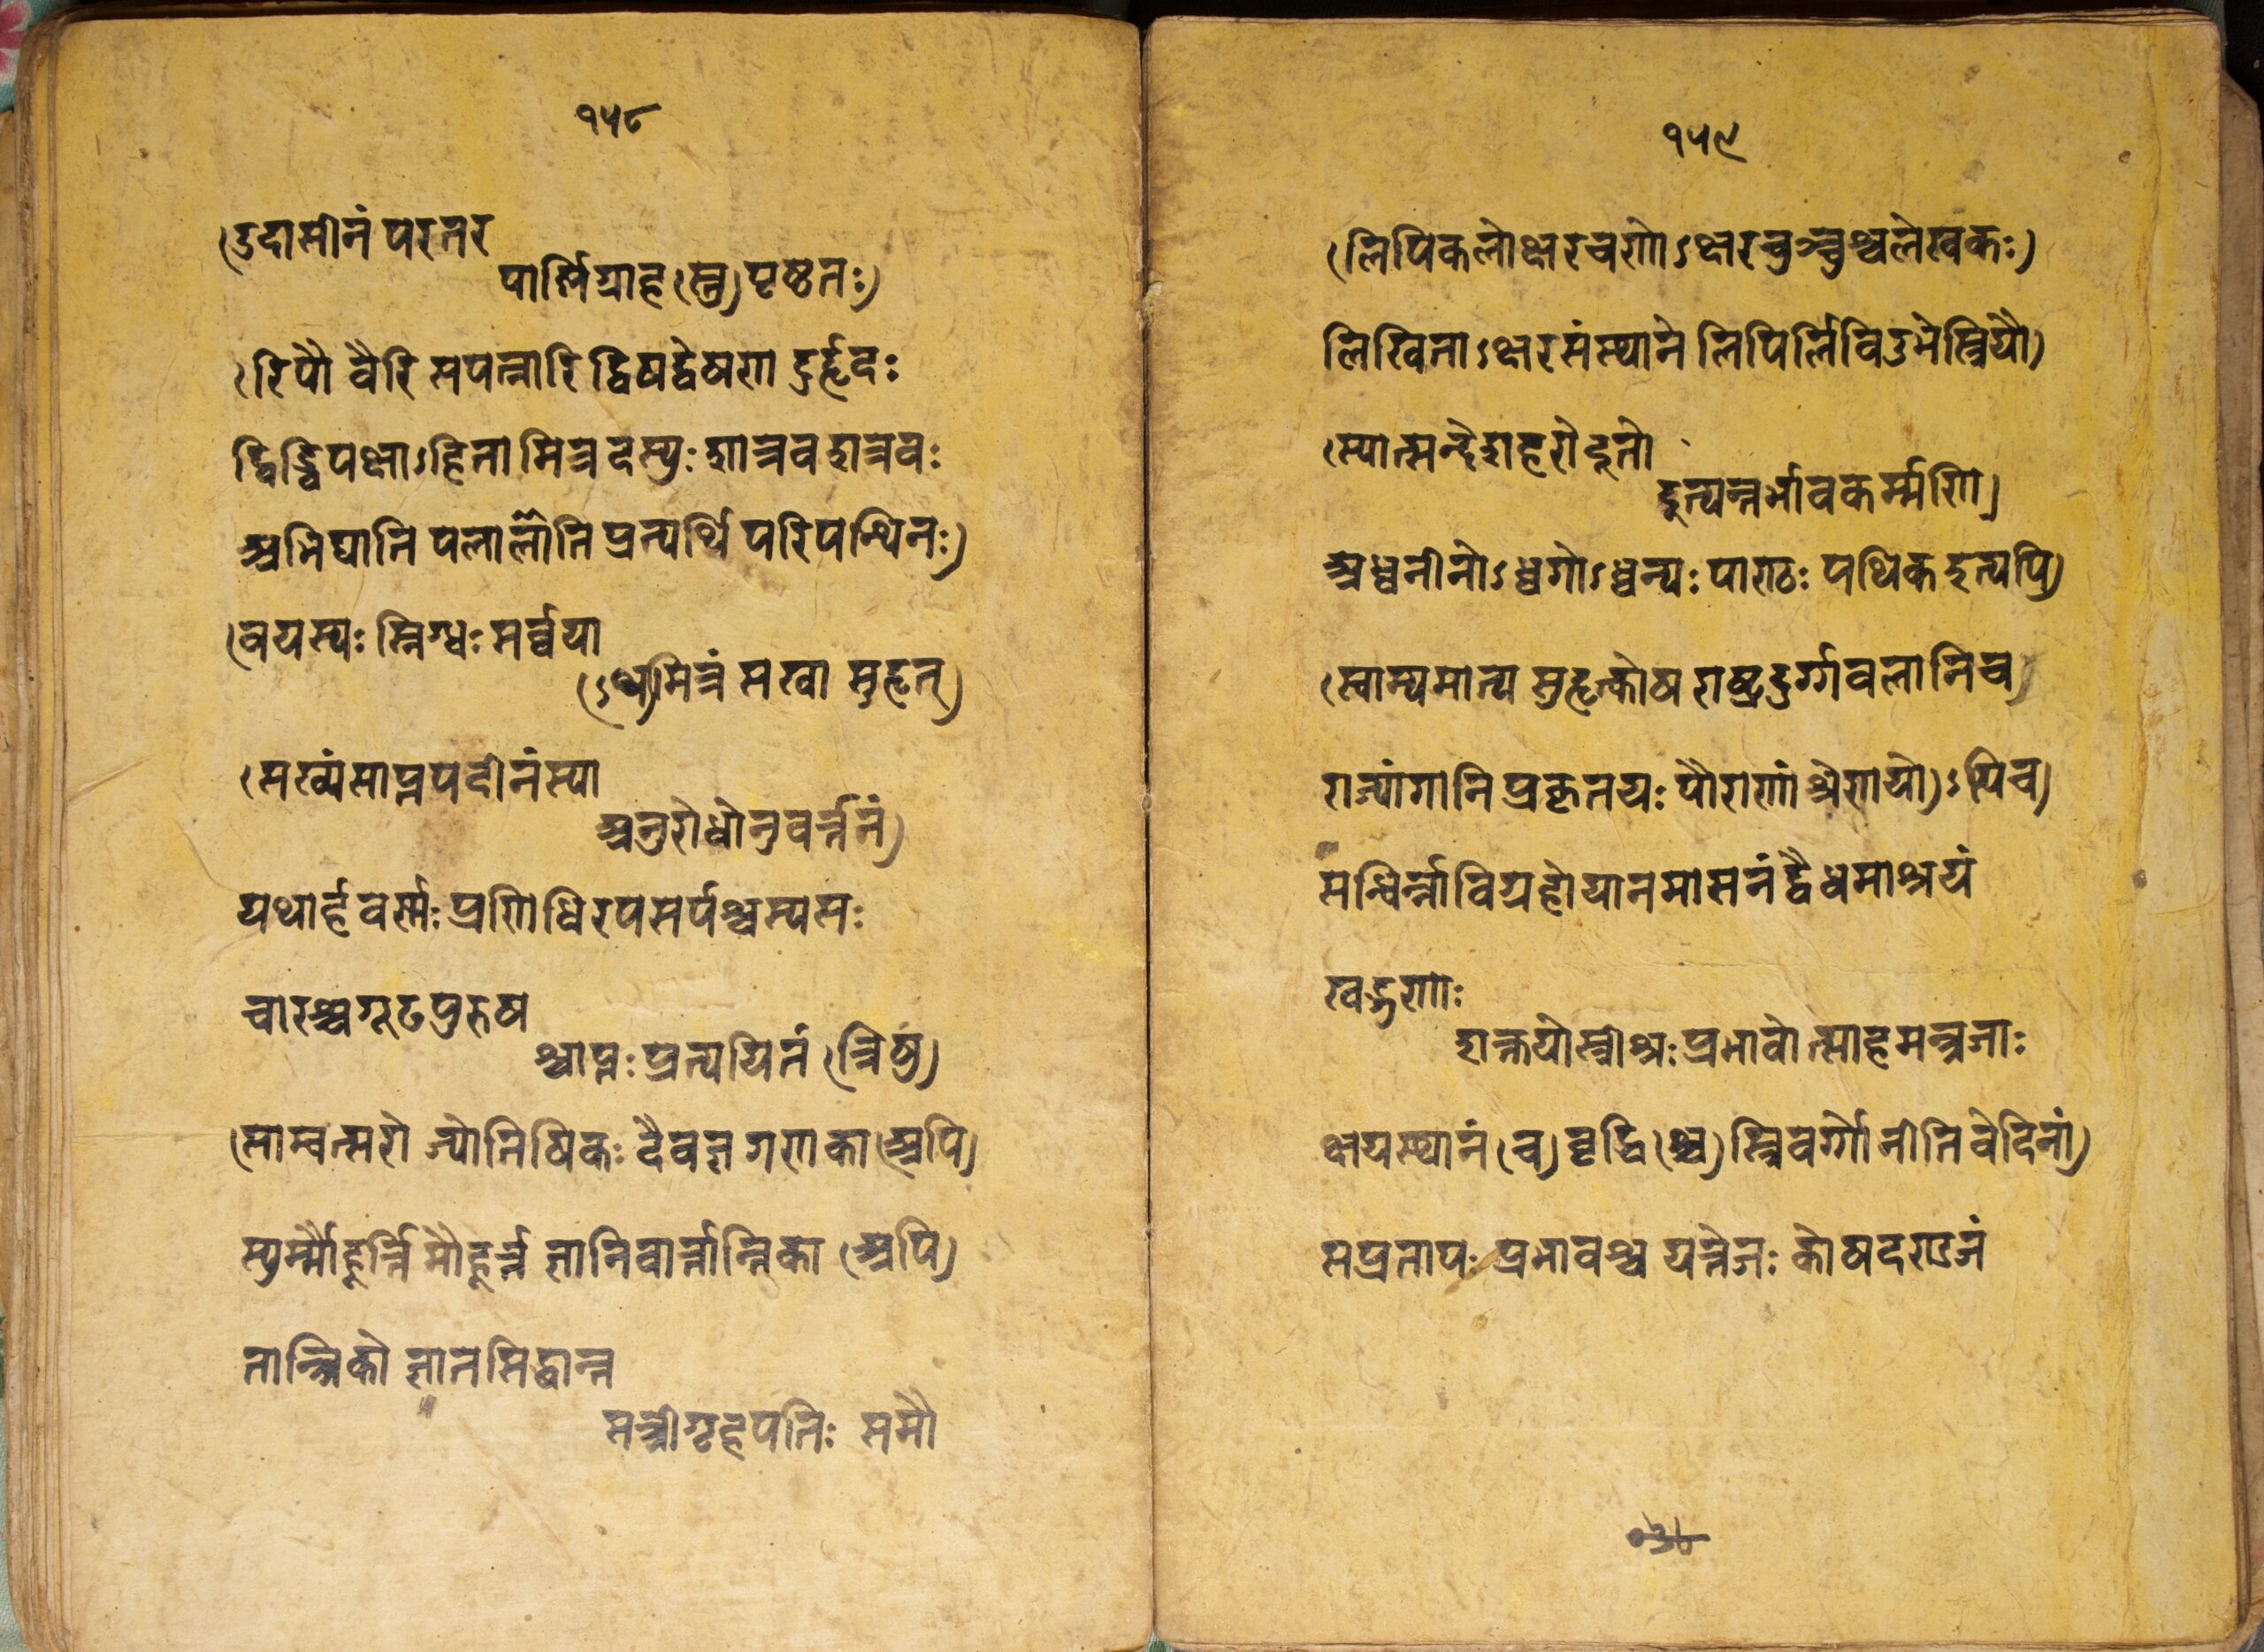 १५८
(उदासीनं परतर
पार्ष्णिग्राह (स्तु) पृष्ठतः)
(रिपौ वैरि सपत्नारि द्विषद्द्वेषण दुर्हृदः
द्विड्विपक्षाऽहितामित्रदस्युः शात्रवशत्रवः
अभिघाति पलालोति प्रत्यर्थि परिपन्थिनः)
(वयस्यः स्निग्धः सर्व्वया
(ऽथ)मित्रं सखा सुहृत्)
(सख्यंसाप्तपदीनंस्या
अनुरोधोनुवर्त्तनं)
यथार्हवर्ण्णः प्रणिधिरपसर्पश्चस्पसः
चारश्चगूढपुरुष
श्चाप्तः प्रत्ययितं (त्रिषु)
(साम्वत्सरो ज्योतिषिकः दैवज्ञगणका (अपि)
स्युर्म्मौहूर्त्ति मौहूर्त्त ज्ञानिवार्त्तान्तिका (अपि)
तान्त्रिको ज्ञातसिद्धान्त
सत्रीगृहपतिः समौ
१५९
(लिपिकलोक्षरचणोऽक्षरचुञ्चुश्चलेखकः)
लिखिताऽक्षरसंस्थाने लिपिर्लिविउभेस्त्रियौ)
(स्यात्सन्देशहरोदूतो
दूत्यन्तर्भावकर्म्मणि)
अध्वनीनोऽध्वगोऽध्वन्यः पाण्ठः पथिकइत्यपि)
(स्वाम्यमात्य सुहृत्कोष राष्ट्रदुर्ग्गवलानिच)
राज्यांगानि प्रकृतयः पौराणां श्रेणयो)ऽपिच)
सन्धिर्न्नाविग्रहोयानमासनंद्वैधमाश्रयं
खड्गुणाः
शक्तयोस्त्रीश्रः प्रभावोत्साहमन्त्रजाः
क्षयस्थानं (च) वृद्धि (श्च) स्त्रिवर्ग्गो नीतिवेदिनां)
सप्रतापः प्रभावश्च यत्तेजः कोषदण्डजं